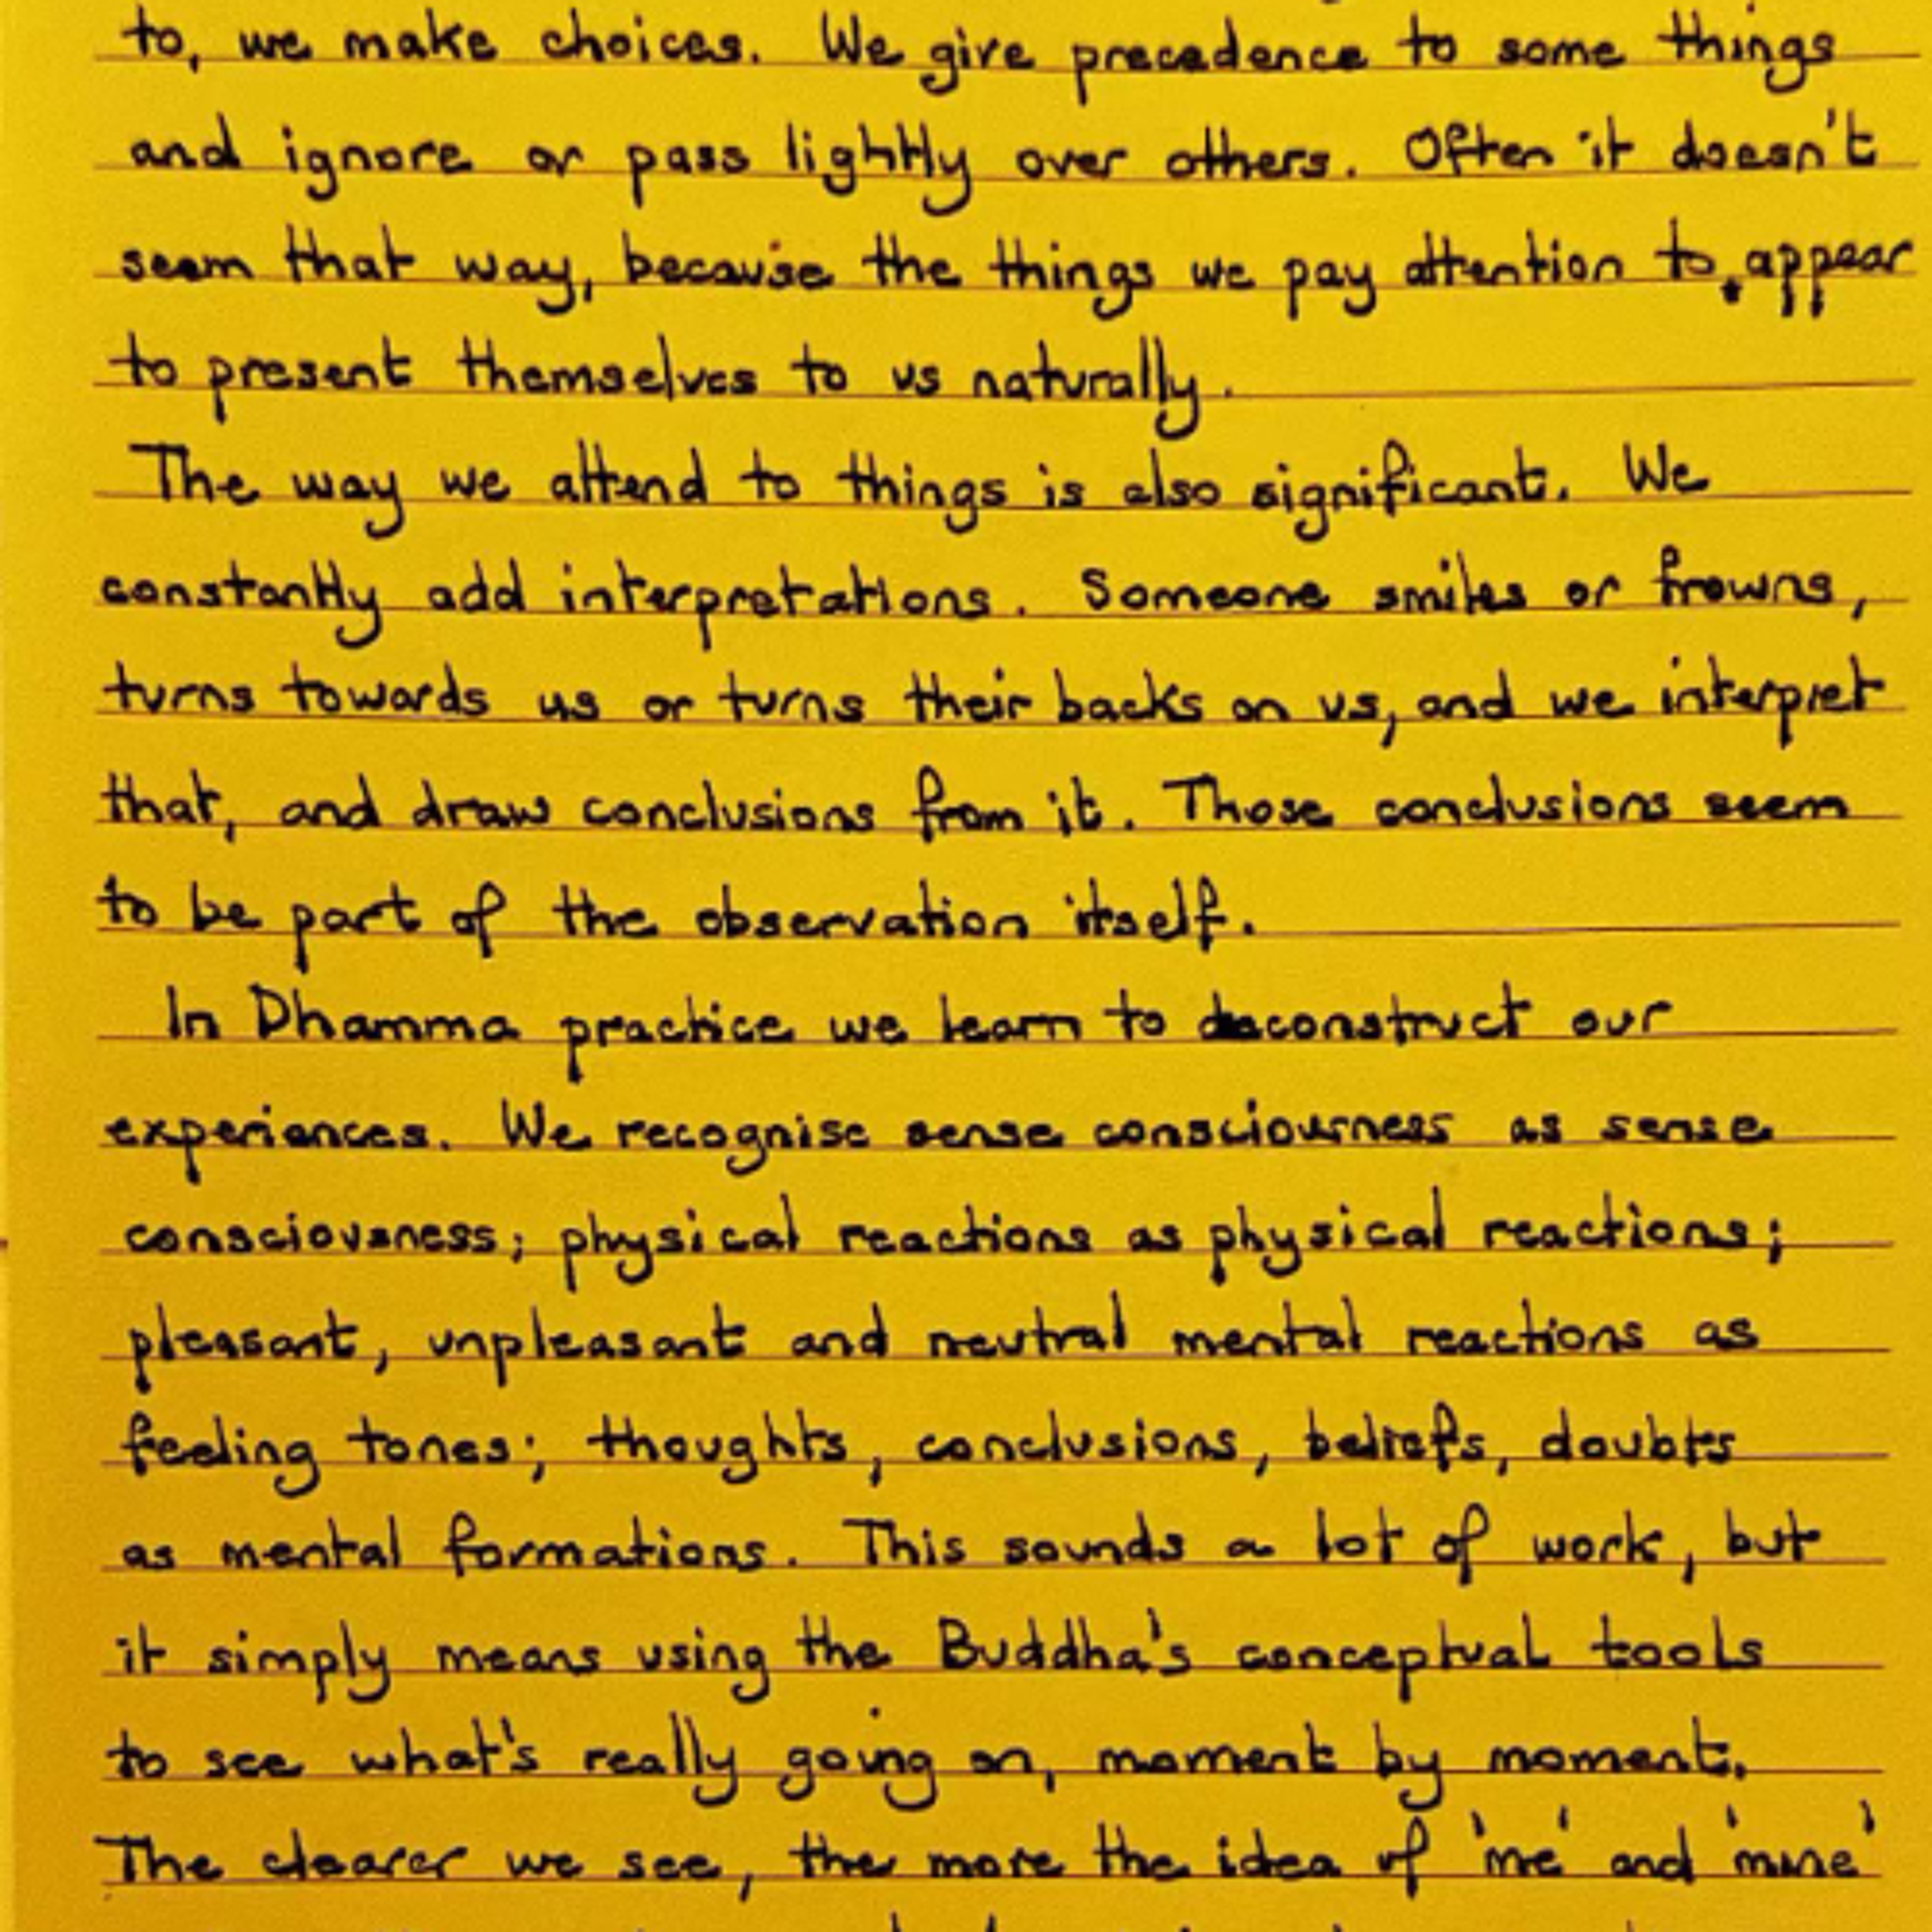 to, we make choices. We give precedence to some things
and ignore or pass lightly over others. Often it doesn't
seem that way, because the things we pay attention to, appear
to present themselves to us naturally.
The way we attend to things is also significant. We
constantly add interpretations. Someone smiles or frowns,
turns towards us or turns their backs on us, and we interpret
that, and draw conclusions from it. Those conclusions seem
to be part of the observation itself.
In Dhamma practice we learn to deconstruct our
experiences. We recognise sense consciourness as sense
consciousness; physical reactions as physical reactions;
pleasant, unpleasant and neutral mental reactions as
feeling tones; thoughts, conclusions, beliefs, doubts
as mental formations. This sounds a lot of work, but
it simply means using the Buddha's conceptual tools
to see what's really going on, moment by moment.
The clearer we see, the more the idea of 'me' and 'mine'